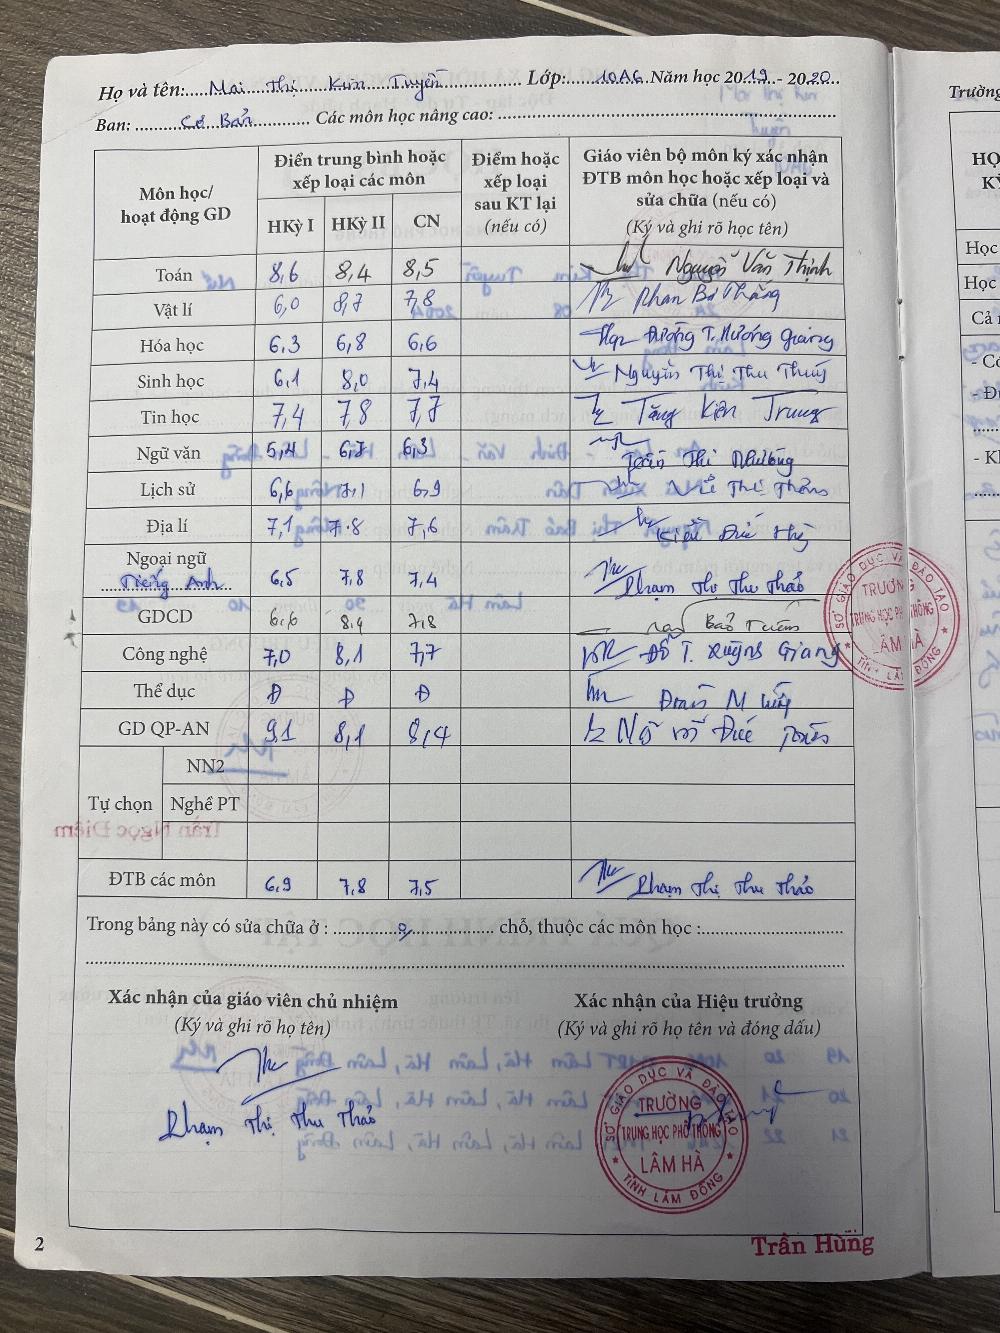 Họ và tên:.....Mai Thị Kim Tuyền........... Lớp:.....10A6.Năm học 2019.- 2020...
Ban: .........Cơ Bản........... Các môn học nâng cao: ...........
Môn học/ hoạt động GD
Điển trung bình hoặc xếp loại các môn
HKỳ I HKỳ II CN
Điểm hoặc xếp loại sau KT lại (nếu có)
Giáo viên bộ môn ký xác nhận ĐTB môn học hoặc xếp loại và sửa chữa (nếu có)
(Ký và ghi rõ học tên)
Toán 8,6 8,4 8,5 Nguyễn Văn Thịnh
Vật lí 6,0 8,7 7,8 Phan Bá Thắng
Hóa học 6,3 6,8 6,6 Dương T. Hương Giang
Sinh học 6,1 8,0 7,4 Nguyễn Thị Thu Thủy
Tin học 7,4 7,8 7,7 Tăng Kiên Trung
Ngữ văn 5,4 6,7 6,3 Thị
Lịch sử 6,6 7,1 6,9
Địa lí 7,1 7.8 7,6 Đức
Ngoại ngữ
Tiếng Anh 6,5 7,8 7,4 Phạm Thị Thu Thảo
GDCD 6,6 8,4 7,8 Bảo
Công nghệ 7,0 8,1 7,7 Đỗ T. Giang
Thể dục Đ Đ Đ
GD QP-AN 9,1 8,1 8,4 Đức
Tự chọn
NN2
Nghề PT
ĐTB các môn 6,9 7,8 7,5 Phạm Thị Thu Thảo
Trong bảng này có sửa chữa ở : ........0........ chỗ, thuộc các môn học :...........
Xác nhận của giáo viên chủ nhiệm
(Ký và ghi rõ họ tên)
Phạm Thị Thu Thảo
Xác nhận của Hiệu trưởng
(Ký và ghi rõ họ tên và đóng dấu)
SỞ GIÁO DỤC VÀ ĐÀO TẠO
TRƯỜNG
TRUNG HỌC PHỔ THÔNG
LÂM HÀ
TỈNH LÂM ĐỒNG
Trần Hùng
2
SỞ GIÁO DỤC VÀ ĐÀO TẠO
TRƯỜNG
TRUNG HỌC PHỔ THÔNG
LÂM HÀ
TỈNH LÂM ĐỒNG
Trường
HỌ
KỲ
Học
Học
Cả
- Có
- Đi
- Kh